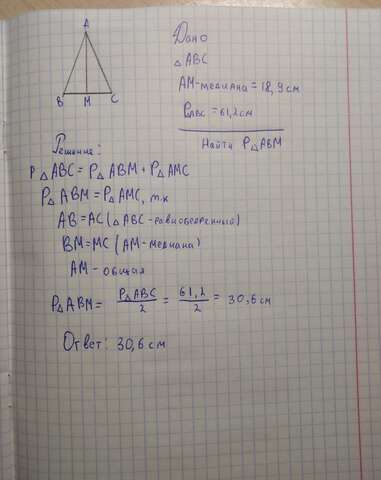 A
B M C
Дано
△ABC
AM-медиана = 18,9 см
P△ABC = 61,2 см
Найти P△ABM
Решение:
P△ABC = P△ABM + P△AMC
P△ABM = P△AMC, т.к
AB = AC (△ABC - равнобедренный)
BM = MC (AM - медиана)
AM - общая
P△ABM = P△ABC/2 = 61,2/2 = 30,6 см
Ответ: 30,6 см